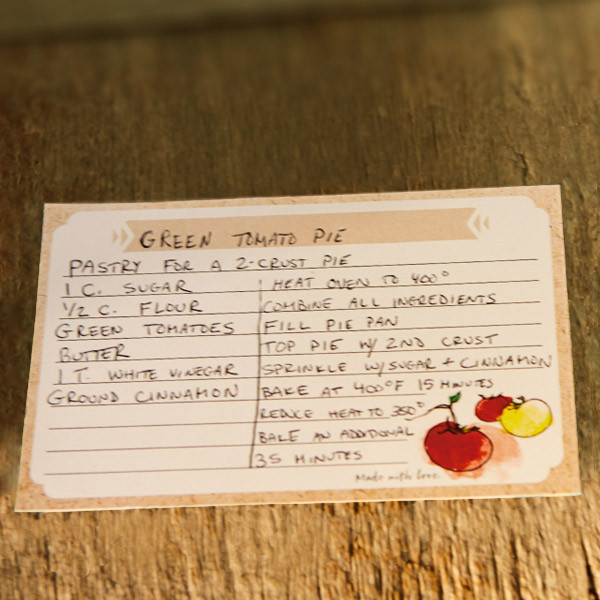 GREEN TOMATO PIE
PASTRY FOR A 2-CRUST PIE
1 C. SUGAR
1/2 C. FLOUR
GREEN TOMATOES
BUTTER
1 T. WHITE VINEGAR
GROUND CINNAMON
HEAT OVEN TO 400°
COMBINE ALL INGREDIENTS
FILL PIE PAN
TOP PIE W/ 2ND CRUST
SPRINKLE W/SUGAR + CINNAMON
BAKE AT 400°F 15 MINUTES
REDUCE HEAT TO 350°
BAKE AN ADDITIONAL
35 MINUTES
Made with love